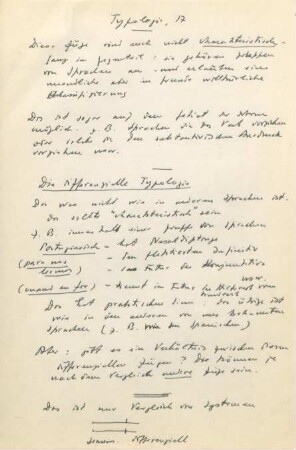 Typologie, 17
Diese Züge sind auch nicht "charakteristisch".
ganz im Gegenteil: sie gehören Gruppen
von Sprachen an und erlauben eine
unendliche, aber im Grunde willkürliche
Klassifizierung
Das ist sogar auf dem Gebiet der Norm
möglich. z.B. Sprachen die das Verb vorziehen
oder solche die den substantivischen Ausdruck
vorziehen usw.
Die differenzielle Typologie
Das was nicht wie in anderen Sprachen ist.
Das sollte "charakteristisch" sein
z. B. innerhalb einer Gruppe von Sprachen
Portugiesisch - hat Nasaldiphtonge
(para nos - den flektierten Infinitiv
lermos)
(quando eu for) - das Futur des Konjunktivs
usw.
Das hat praktischen Sinn: das übrige ist
wie in den anderen von uns bekannten
Sprachen (z. B. wie im Spanischen)
Aber: gibt es ein Verhältnis zwischen diesen
differenziellen Zügen? Das können je
nach dem Vergleich andere Züge sein.
Das ist nur Vergleich von Systemen
differenziell